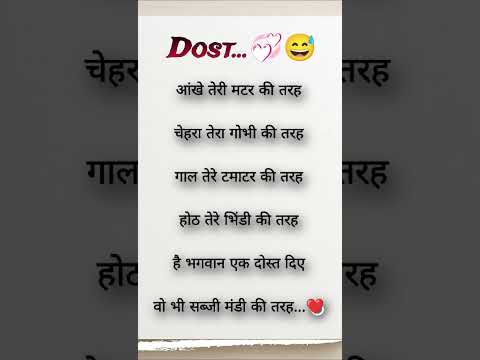 DOST...💞😅
आंखे तेरी मटर की तरह
चेहरा तेरा गोभी की तरह
गाल तेरे टमाटर की तरह
होठ तेरे भिंडी की तरह
है भगवान एक दोस्त दिए
वो भी सब्जी मंडी की तरह...❤️